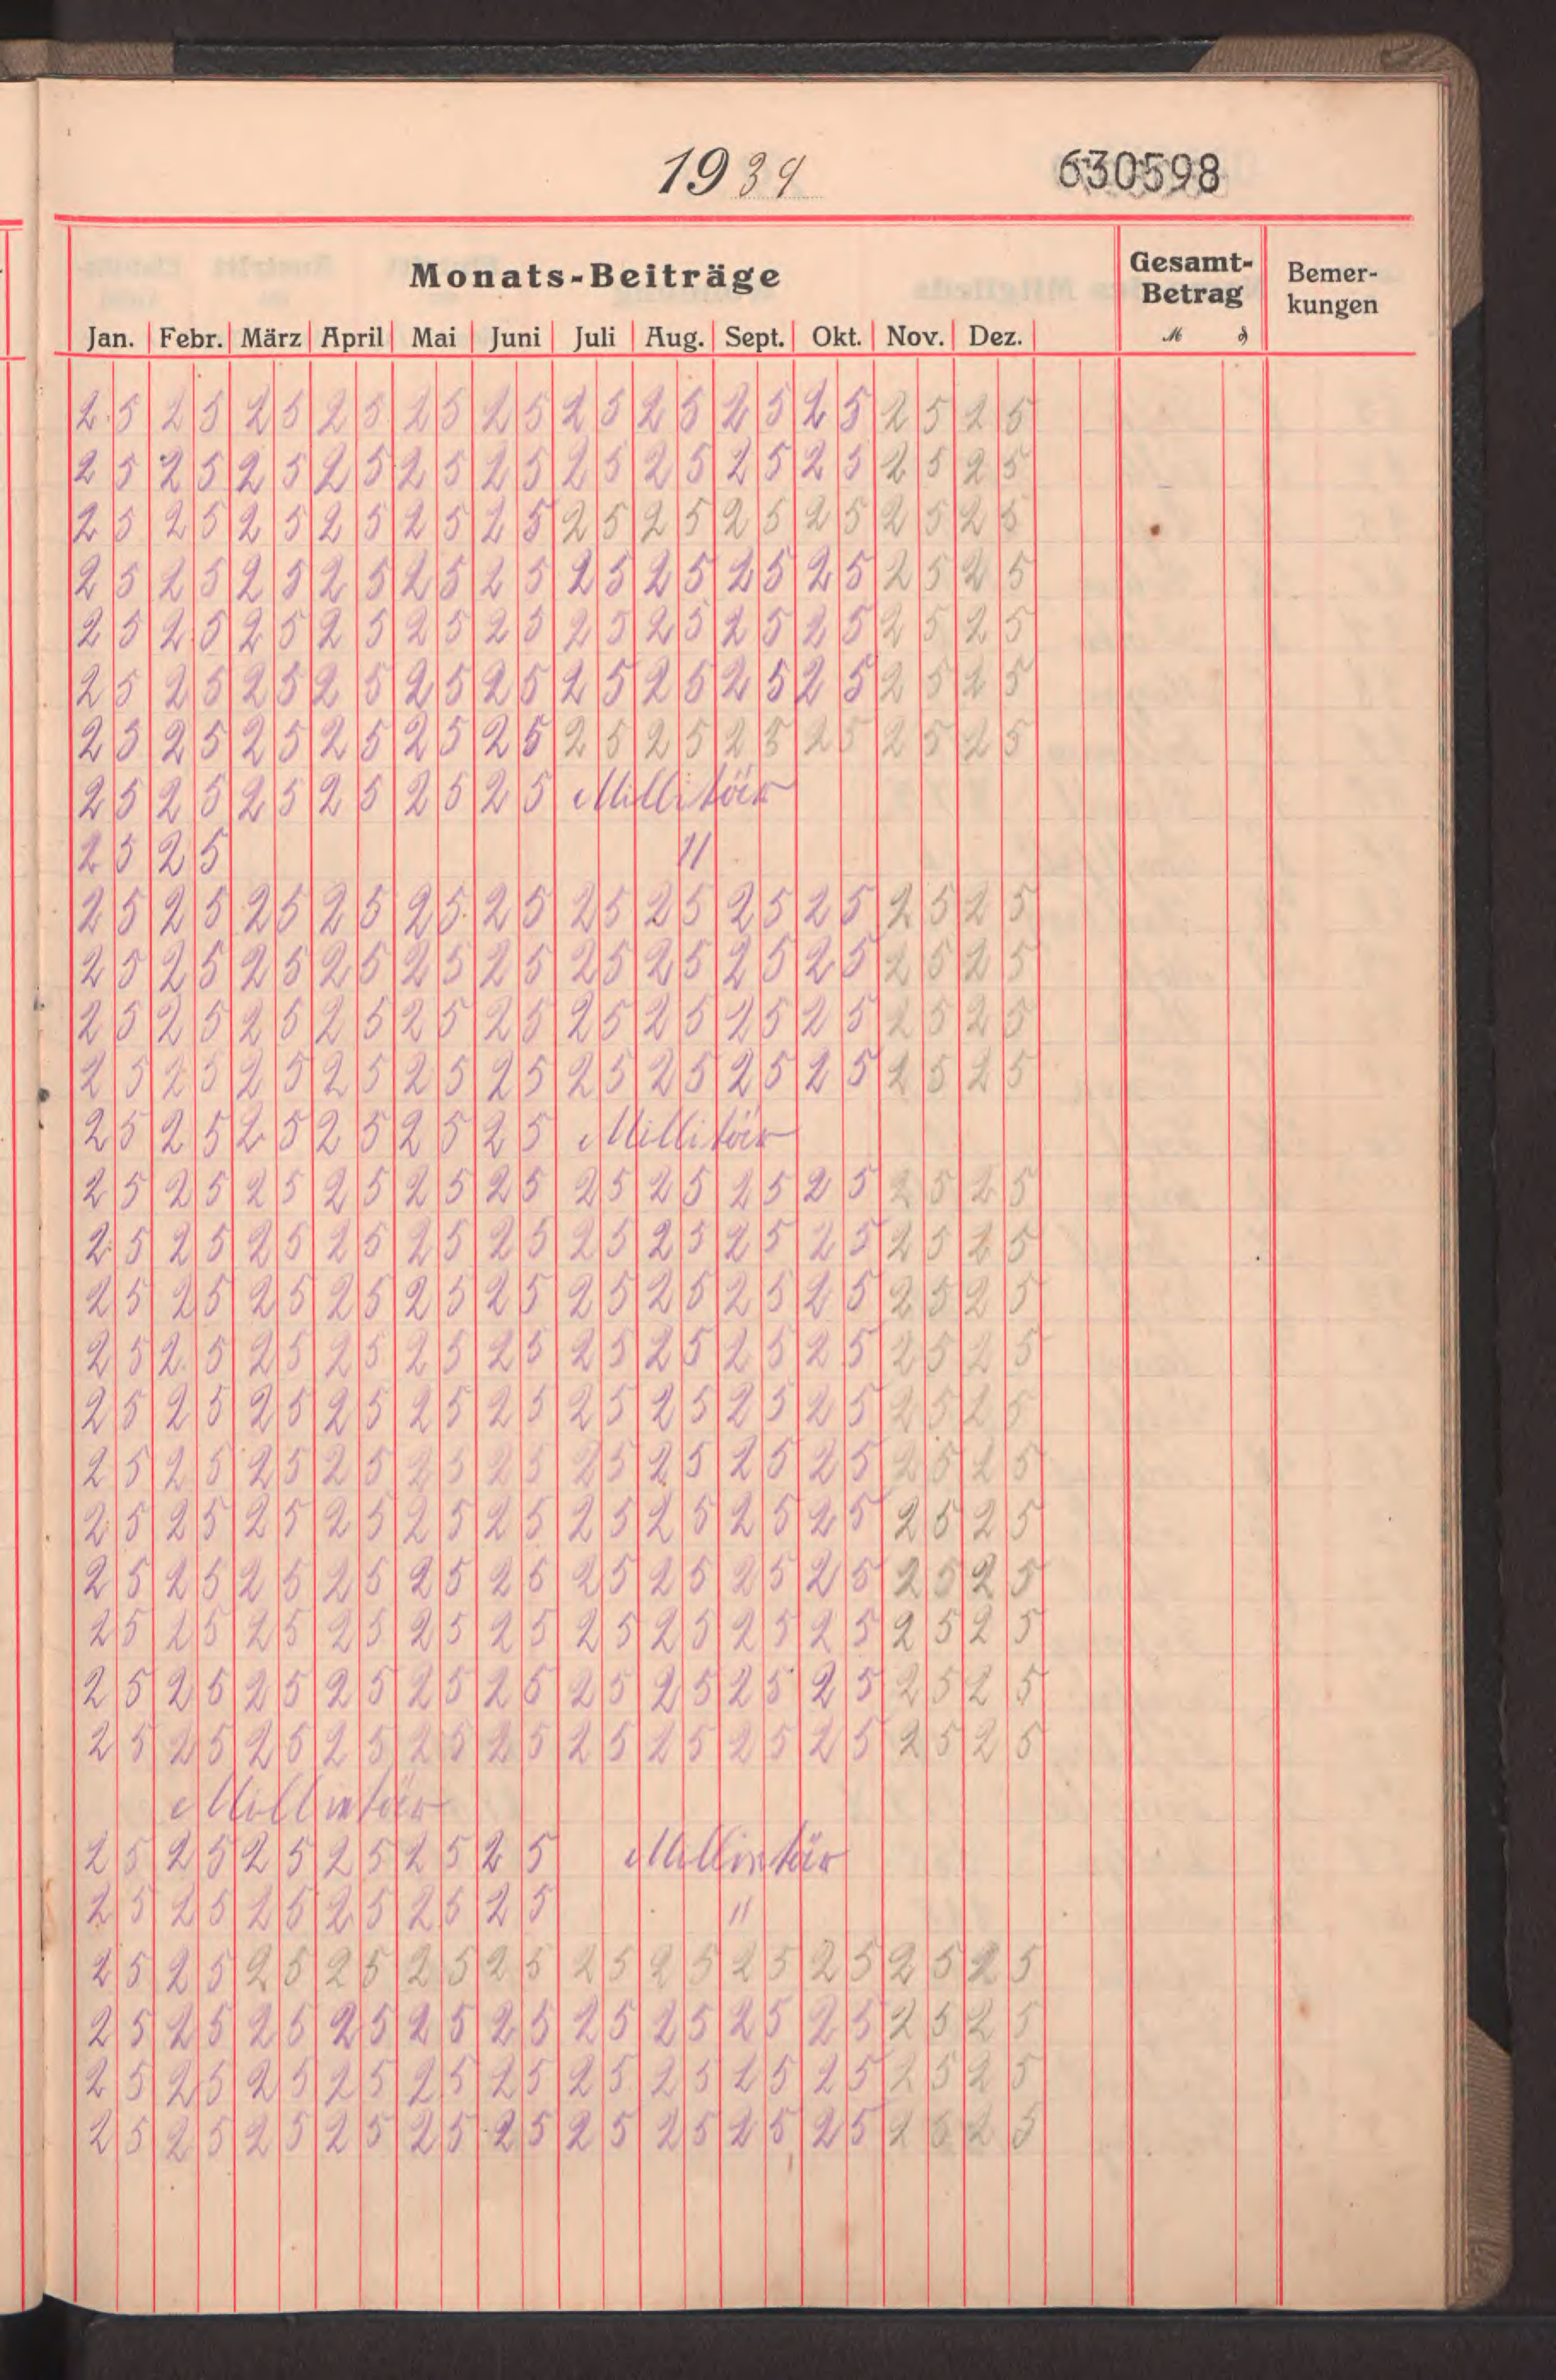 1939 630598
Monats-Beiträge Gesamt-Betrag Bemer-kungen
Jan. Febr. März April Mai Juni Juli Aug. Sept. Okt. Nov. Dez. M ₰
25 25 25 25 25 25 25 25 25 25 25 25
25 25 25 25 25 25 25 25 25 25 25 25
25 25 25 25 25 25 25 25 25 25 25 25
25 25 25 25 25 25 25 25 25 25 25 25
25 25 25 25 25 25 25 25 25 25 25 25
25 25 25 25 25 25 25 25 25 25 25 25
25 25 25 25 25 25 25 25 25 25 25 25
25 25 25 25 25 25 Millitär
25 25 "
25 25 25 25 25 25 25 25 25 25 25 25
25 25 25 25 25 25 25 25 25 25 25 25
25 25 25 25 25 25 25 25 25 25 25 25
25 25 25 25 25 25 25 25 25 25 25 25
25 25 25 25 25 25 Millitär
25 25 25 25 25 25 25 25 25 25 25 25
25 25 25 25 25 25 25 25 25 25 25 25
25 25 25 25 25 25 25 25 25 25 25 25
25 25 25 25 25 25 25 25 25 25 25 25
25 25 25 25 25 25 25 25 25 25 25 25
25 25 25 25 25 25 25 25 25 25 25 25
25 25 25 25 25 25 25 25 25 25 25 25
25 25 25 25 25 25 25 25 25 25 25 25
25 25 25 25 25 25 25 25 25 25 25 25
25 25 25 25 25 25 25 25 25 25 25 25
25 25 25 25 25 25 25 25 25 25 25 25
Millintär
25 25 25 25 25 25 Millintär
25 25 25 25 25 25 "
25 25 25 25 25 25 25 25 25 25 25 25
25 25 25 25 25 25 25 25 25 25 25 25
25 25 25 25 25 25 25 25 25 25 25 25
25 25 25 25 25 25 25 25 25 25 25 25